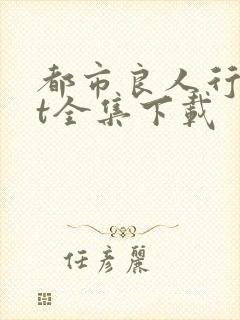 都市良人行
t全集下载
任彦丽